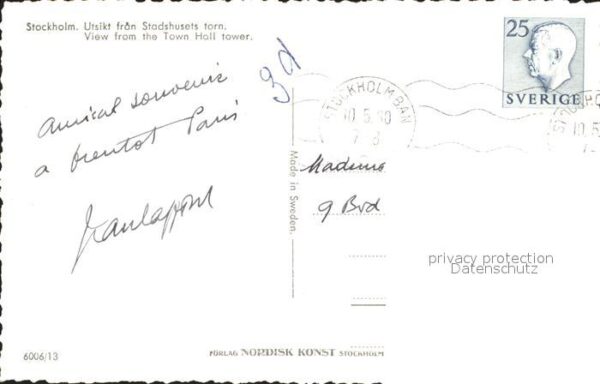 Stockholm. Utsikt från Stadshusets torn.
View from the Town Hall tower.
25
SVERIGE
STOCKHOLM BAN
10.5.60
STOCKHO
10.5.
3d
Amical souvenir
a bientot Paris
Made in Sweden.
Madame
9 Bvd
privacy protection
Datenschutz
6006/13
FÖRLAG NORDISK KONST STOCKHOLM